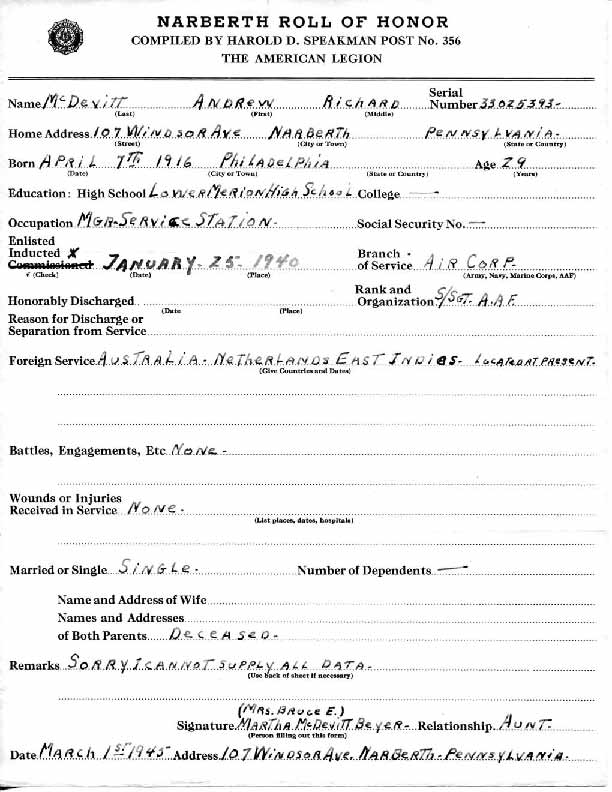 NARBERTH ROLL OF HONOR
COMPILED BY HAROLD D. SPEAKMAN POST No. 356
THE AMERICAN LEGION
Name McDEVITT ANDREW RICHARD Serial Number 33025393-
(Last) (First) (Middle)
Home Address 107 WINDSOR AVE NARBERTH PENNSYLVANIA-
(Street) (City or Town) (State or Country)
Born APRIL 7TH 1916 PHILADELPHIA Age 29
(Date) (City or Town) (State or Country) (Years)
Education: High School LOWER MERION HIGH SCHOOL College —
Occupation MGR-SERVICE STATION- Social Security No. —
Enlisted
Inducted X
Commissioned JANUARY-25-1940 Branch of Service AIR CORP-
√ (Check) (Date) (Place) (Army, Navy, Marine Corps, AAF)
Honorably Discharged Rank and Organization S/SGT. A.A.F.
(Date (Place)
Reason for Discharge or
Separation from Service
Foreign Service AUSTRALIA- NETHERLANDS EAST INDIES- LOCATED AT PRESENT.
(Give Countries and Dates)
Battles, Engagements, Etc NONE-
Wounds or Injuries
Received in Service NONE-
(List places, dates, hospitals)
Married or Single SINGLE- Number of Dependents —
Name and Address of Wife
Names and Addresses
of Both Parents DECEASED-
Remarks SORRY I CANNOT SUPPLY ALL DATA-
(Use back of sheet if necessary)
(MRS. BRUCE E.)
Signature MARTHA McDEVITT BEYER- Relationship AUNT-
(Person filling out this form)
Date MARCH 1ST 1945 Address 107 WINDSOR AVE. NARBERTH-PENNSYLVANIA-